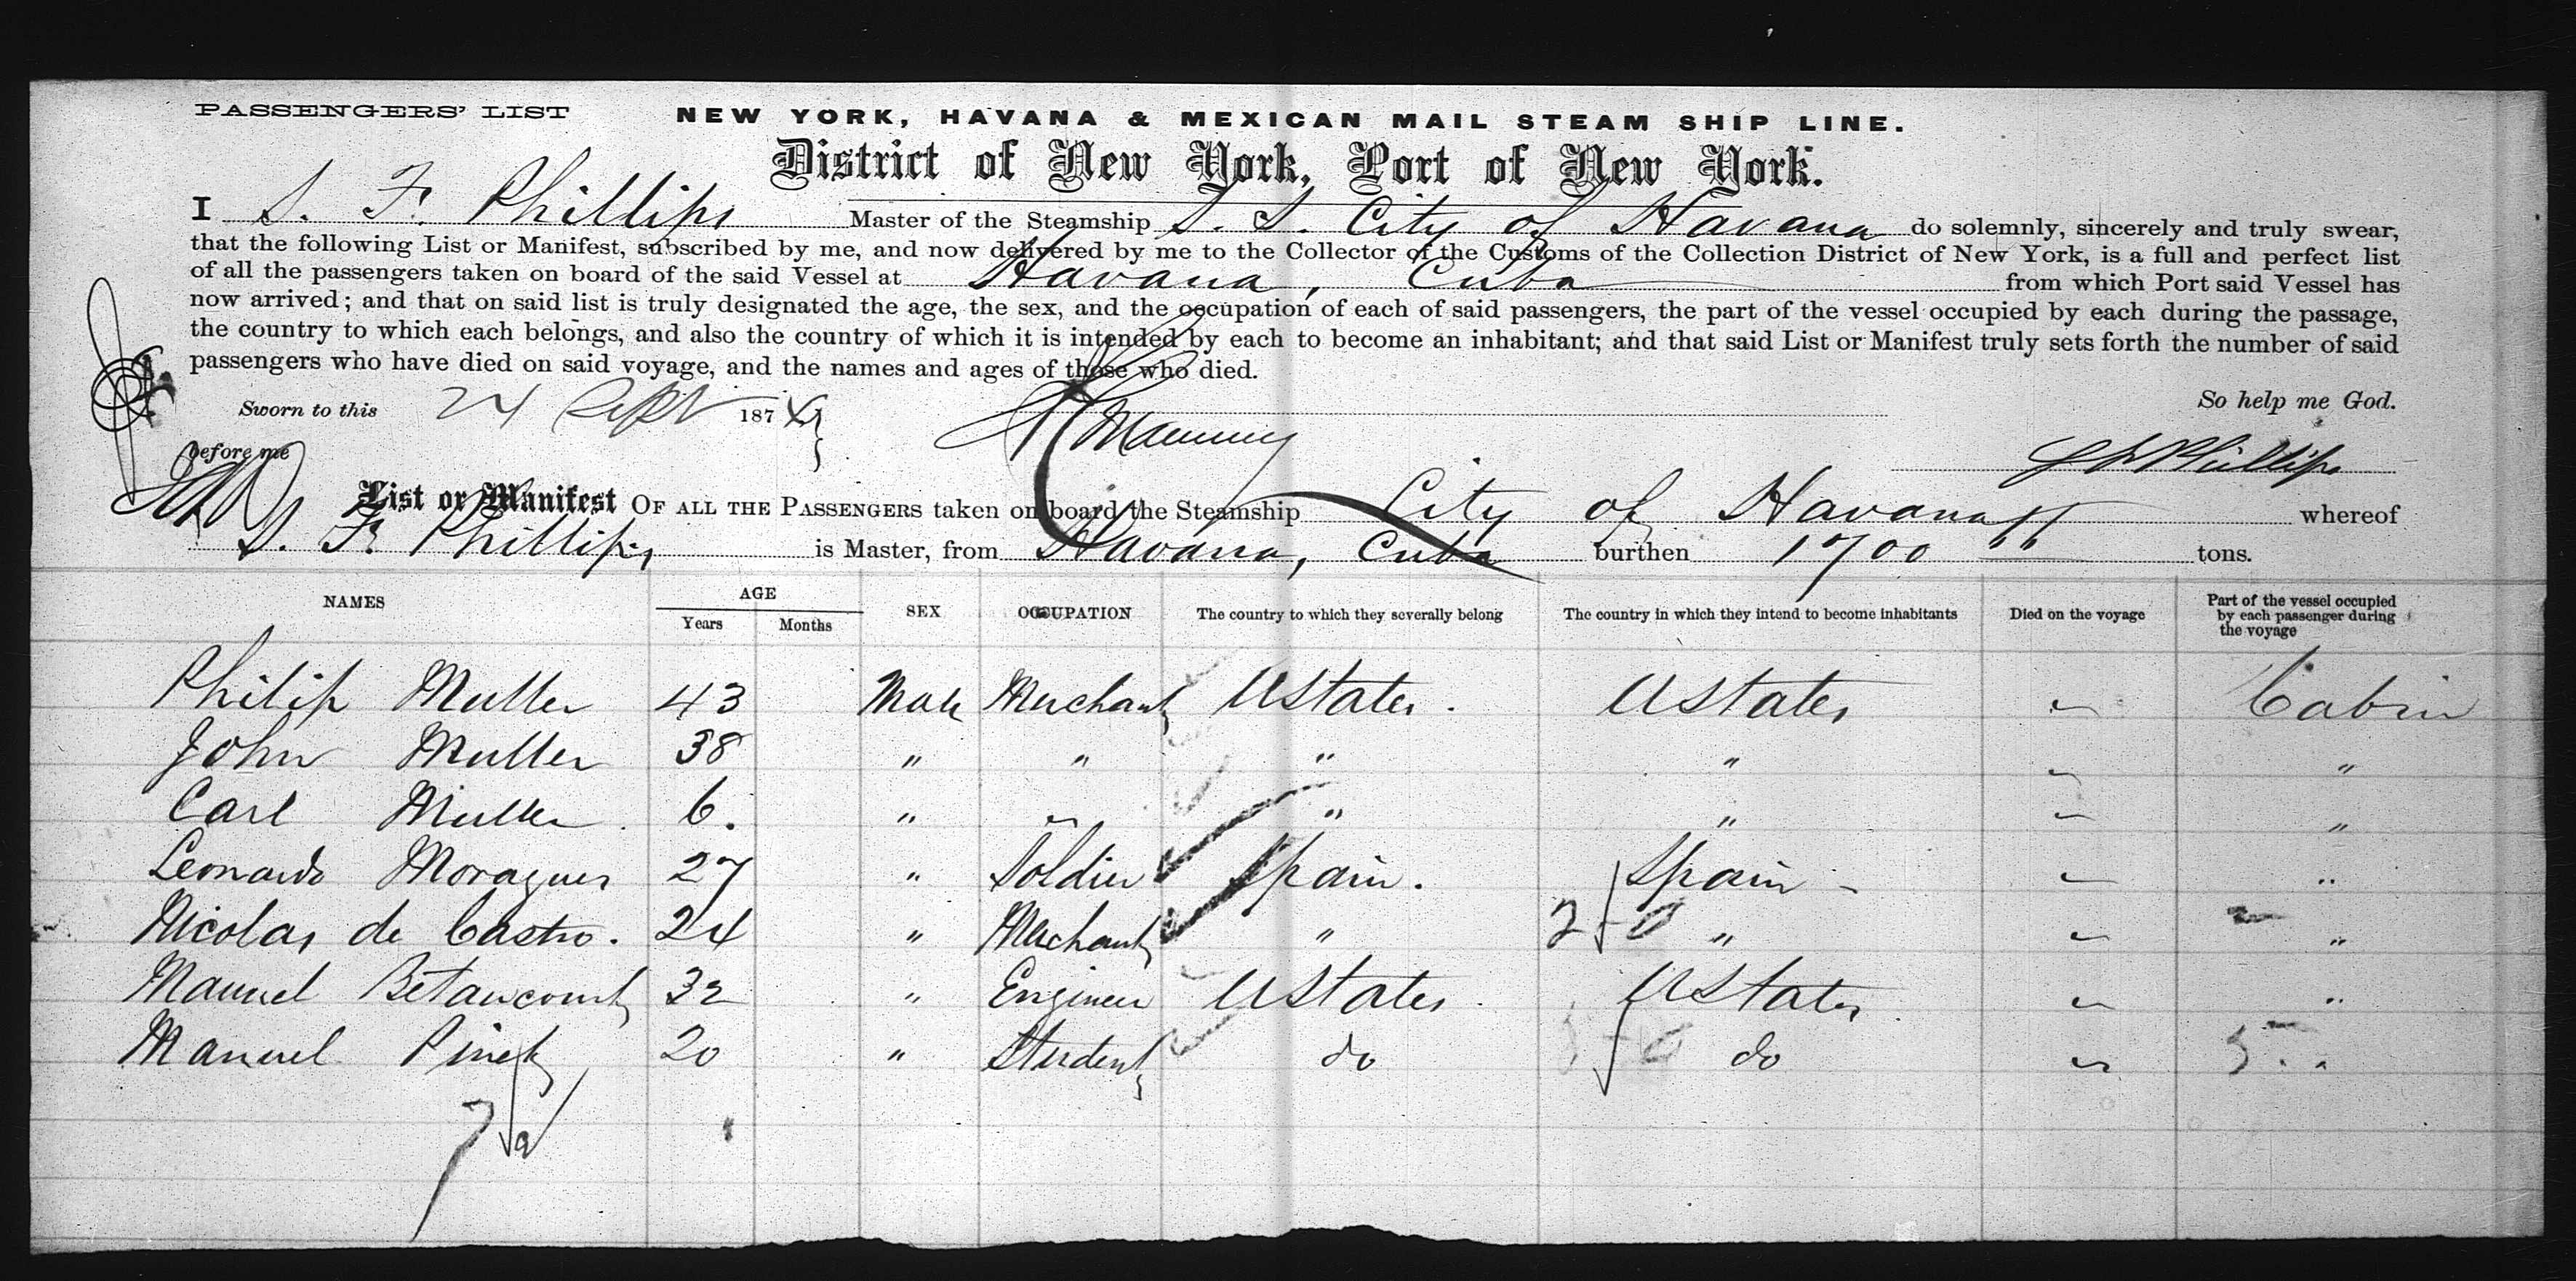 PASSENGERS' LIST
NEW YORK, HAVANA & MEXICAN MAIL STEAM SHIP LINE.
District of New York, Port of New York.
I S. F. Phillips Master of the Steamship S. S. City of Havana do solemnly, sincerely and truly swear,
that the following List or Manifest, subscribed by me, and now delivered by me to the Collector of the Customs of the Collection District of New York, is a full and perfect list
of all the passengers taken on board of the said Vessel at Havana, Cuba from which Port said Vessel has
now arrived; and that on said list is truly designated the age, the sex, and the occupation of each of said passengers, the part of the vessel occupied by each during the passage,
the country to which each belongs, and also the country of which it is intended by each to become an inhabitant; and that said List or Manifest truly sets forth the number of said
passengers who have died on said voyage, and the names and ages of those who died.
So help me God.
Sworn to this 24 Sept 1874
before me
List or Manifest OF ALL THE PASSENGERS taken on board the Steamship City of Havana whereof
S. F. Phillips, is Master, from Havana, Cuba burthen 1700 tons.
NAMES AGE Years Months SEX OCCUPATION The country to which they severally belong The country in which they intend to become inhabitants Died on the voyage Part of the vessel occupied by each passenger during the voyage
Philip Muller 43 Male Merchant UStates. UStates Cabin
John Muller 38 " " " " "
Carl Muller 6. " " " "
Leonardo Moragues 27 " Soldier Spain. Spain "
Nicolas de Castro. 24 " Merchant " " "
Manuel Betancourt 32 " Engineer UStates UStates "
Manuel 20 " Student do do "